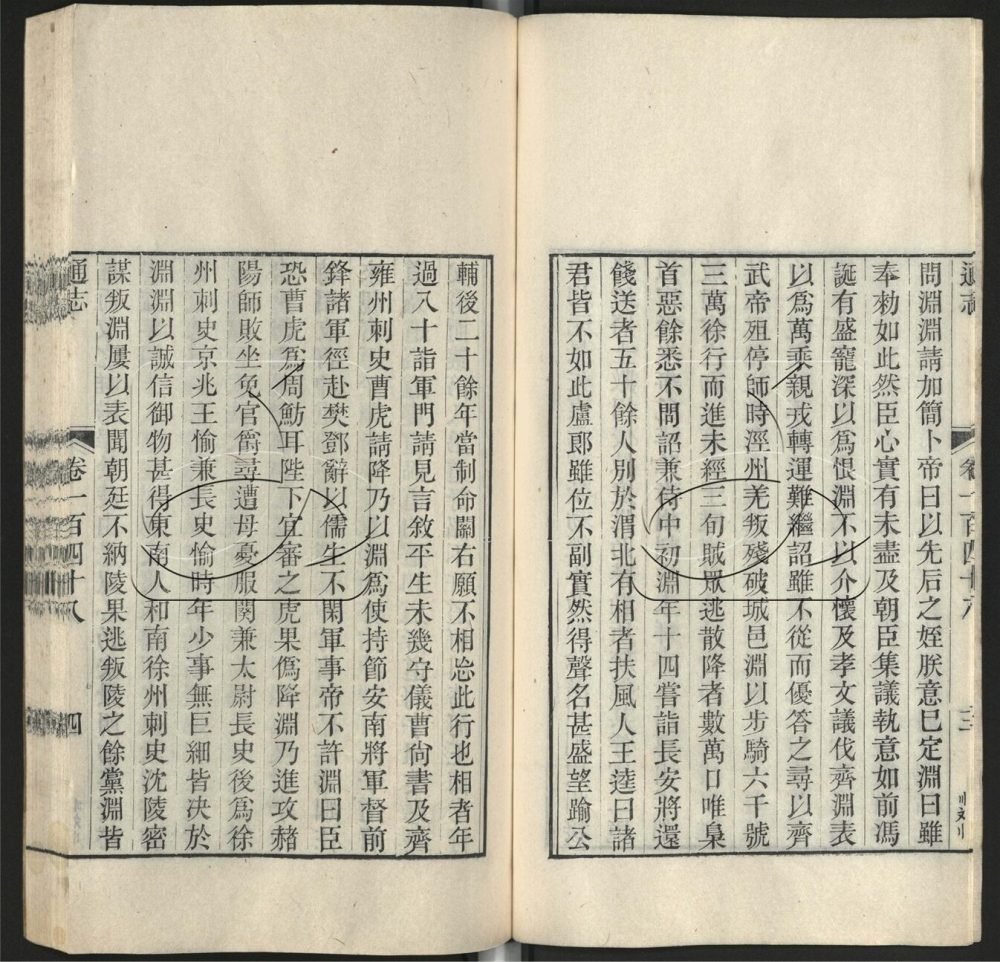 通志 卷一百四十八 三
問淵淵請加簡卜帝曰以先后之姪朕意已定淵曰雖
奉勑如此然臣心實有未盡及朝臣集議執意如前馮
誕有盛寵深以爲恨淵不以介懷及孝文議伐齊淵表
以爲萬乘親戎轉運難繼詔雖不從而優答之尋以齊
武帝殂停師時涇州羌叛殘破城邑淵以步騎六千號
三萬徐行而進未經三旬賊眾逃散降者數萬口唯梟
首惡餘悉不問詔兼侍中初淵年十四嘗詣長安將還
餞送者五十餘人別於渭北有相者扶風人王逵曰諸
君皆不如此盧郎雖位不副實然得聲名甚盛望踰公
輔後二十餘年當制命關右願不相忩此行也相者年
過八十詣軍門請見言敘平生未幾守儀曹尙書及齊
雍州刺史曹虎請降乃以淵爲使持節安南將軍督前
鋒諸軍徑赴樊鄧辭以儒生不閑軍事帝不許淵曰臣
恐曹虎爲周魴耳陛下宜審之虎果僞降淵乃進攻赭
陽師敗坐免官爵尋遭母憂服闋兼太尉長史後爲徐
州刺史京兆王愉兼長史愉時年少事無巨細皆決於
淵淵以誠信御物甚得東南人和南徐州刺史沈陵密
謀叛淵屢以表聞朝廷不納陵果逃叛陵之餘黨淵皆
通志 卷一百四十八 四